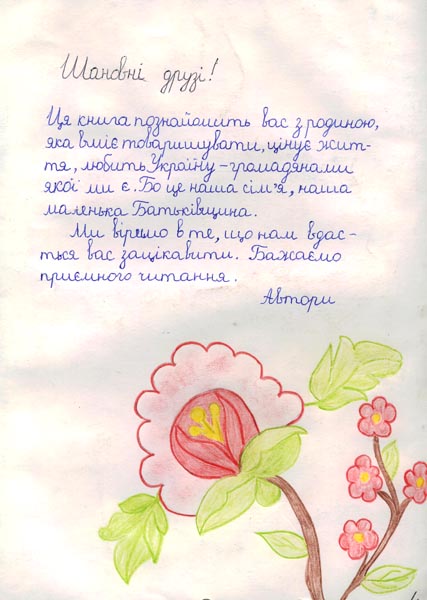 Шановні друзі!
Ця книга познайомить вас з родиною,
яка вміє товаришувати, цінує жит-
тя, любить Україну - громадянами
якої ми є. Бо це наша сім'я, наша
маленька Батьківщина.
Ми віримо в те, що нам вдас-
ться вас зацікавити. Бажаємо
приємного читання.
Автори